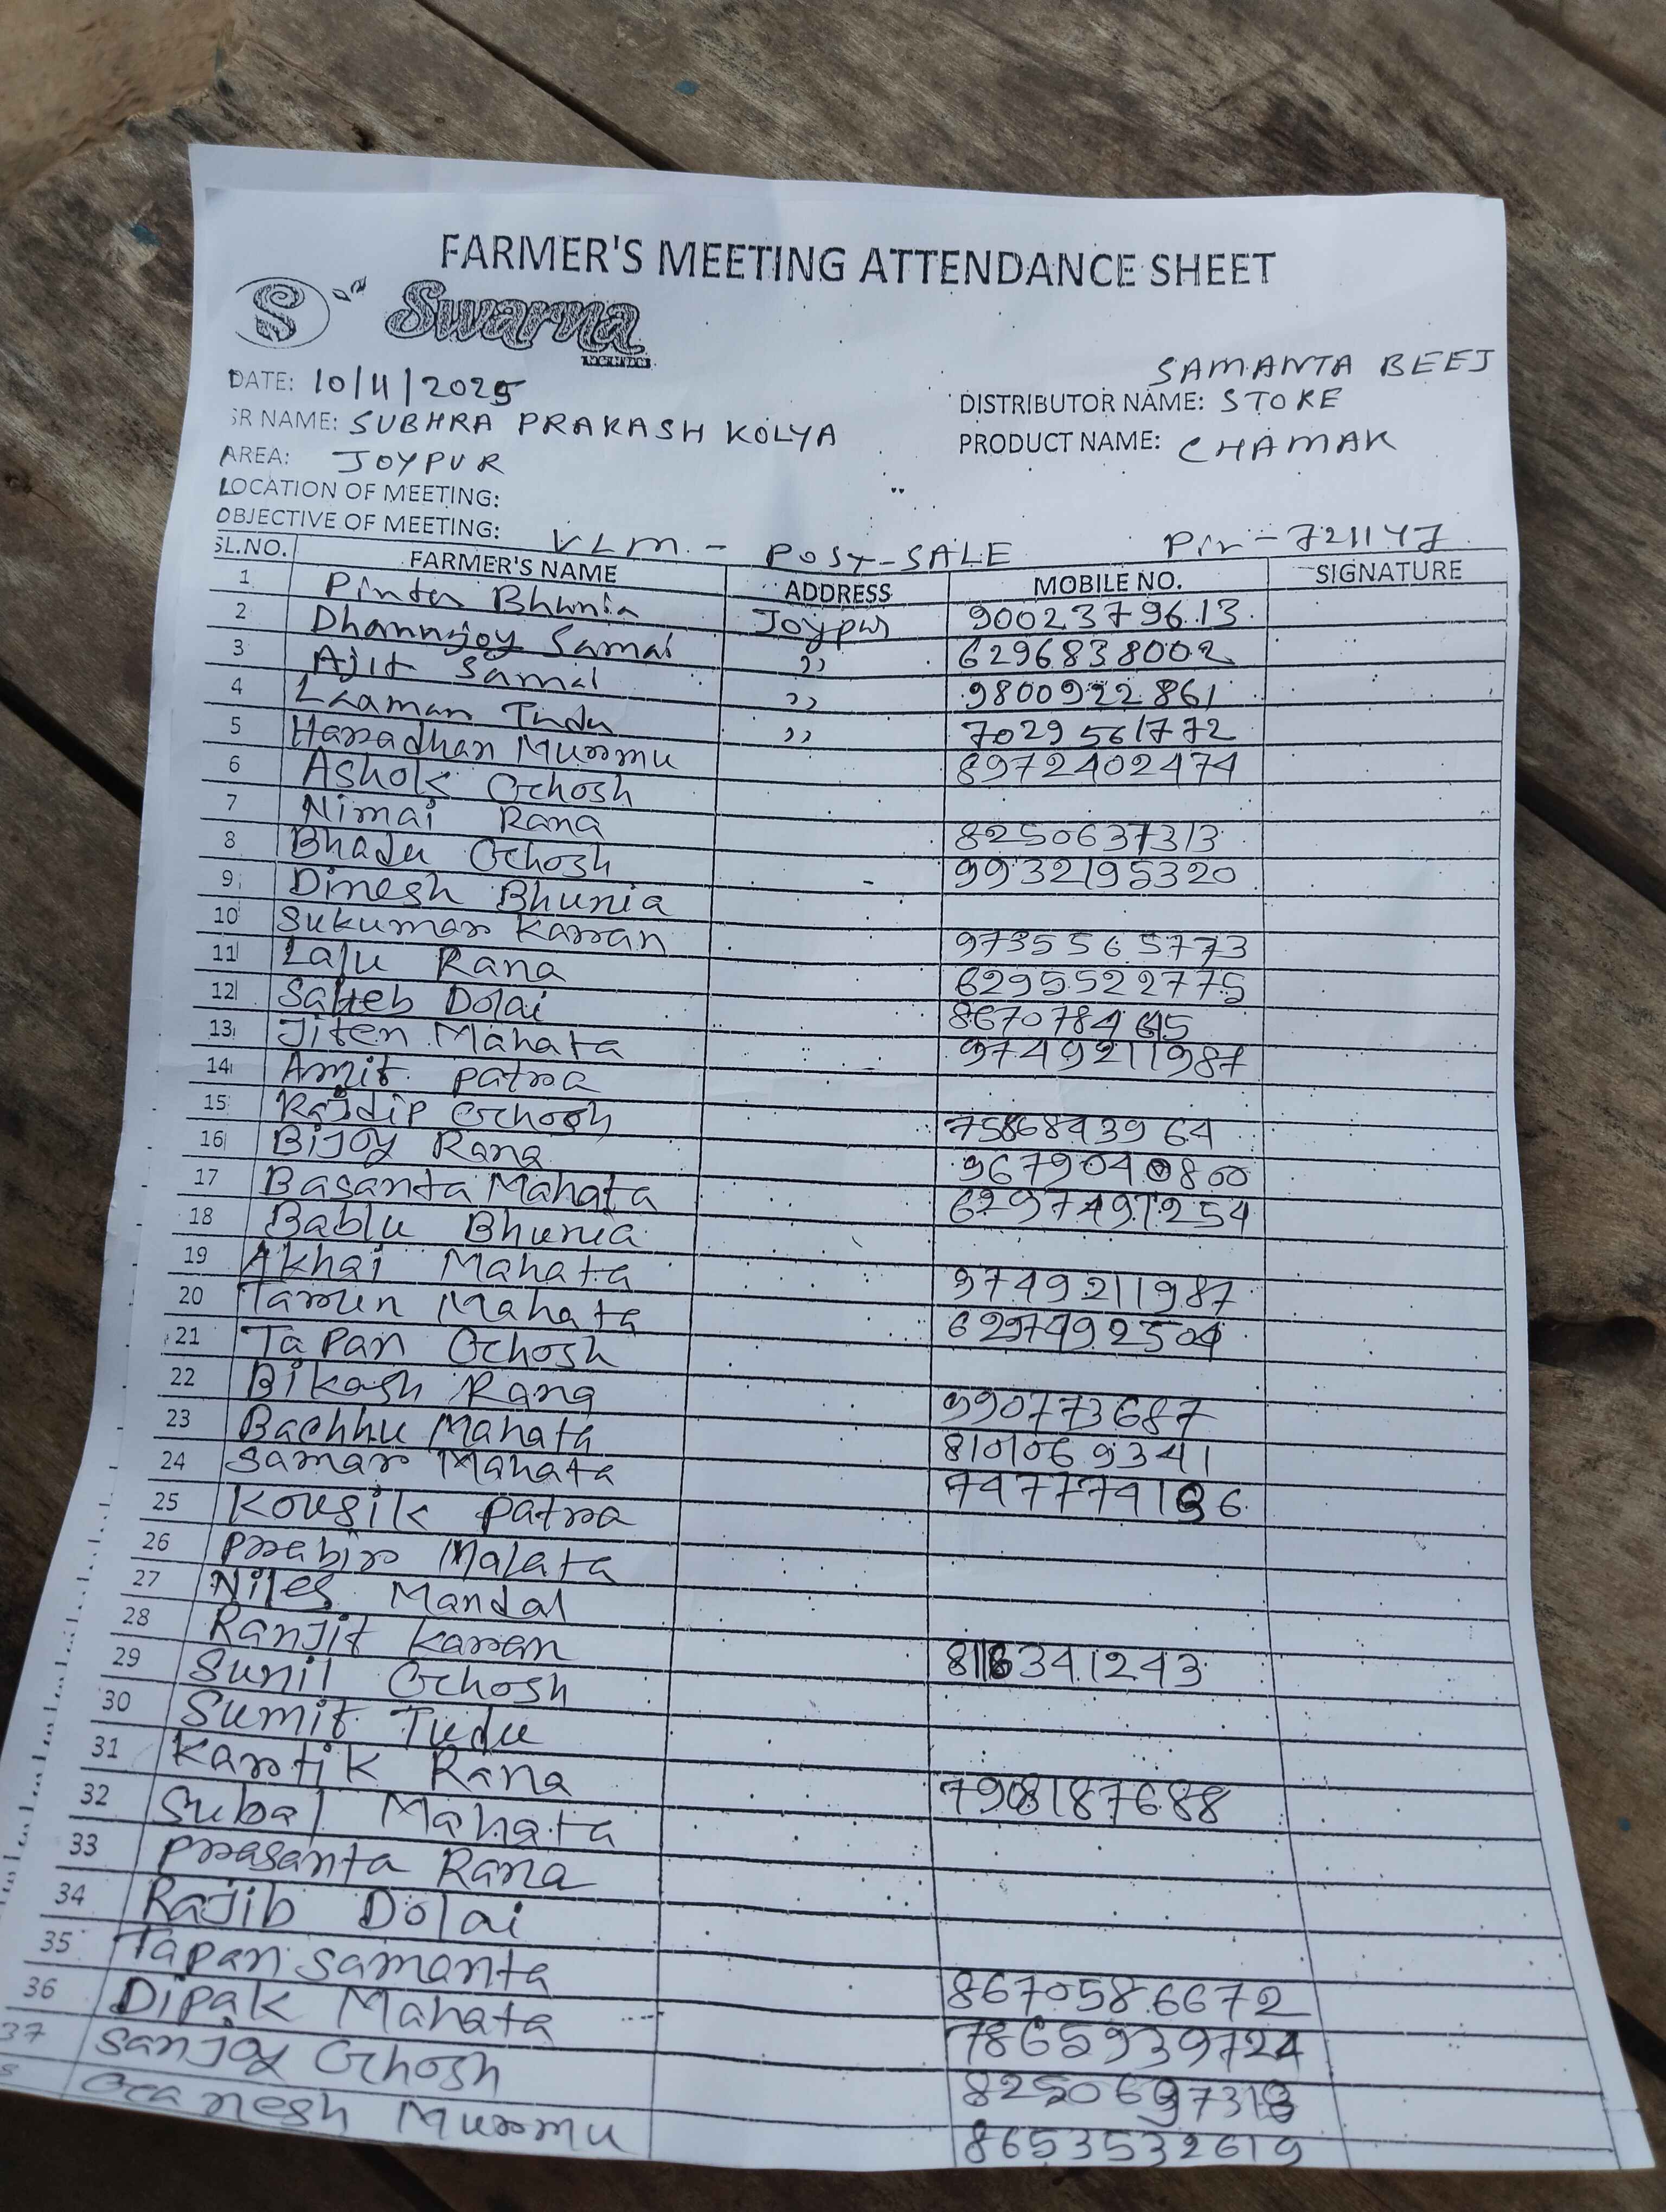 FARMER'S MEETING ATTENDANCE SHEET
S Swarna
SAMANTA BEEJ
DATE: 10/11/2025 DISTRIBUTOR NAME: STORE
SR NAME: SUBHRA PRAKASH KOLYA PRODUCT NAME: CHAMAK
AREA: JOYPUR
LOCATION OF MEETING:
OBJECTIVE OF MEETING: VLM - POST-SALE Pin - 721147
SL.NO. FARMER'S NAME ADDRESS MOBILE NO. SIGNATURE
1 Pintu Bhunia Joypur 9002379613
2 Dhannjoy Samai ,, 6296838002
3 Ajit Samai ,, 9800922861
4 Laaman Tudu ,, 7029561772
5 Haradhan Murmu 8972402474
6 Ashok Ghosh
7 Nimai Rana 8250637313
8 Bhadu Ghosh 9932195320
9 Dinesh Bhunia
10 Sukumar Karan 9735565773
11 Lalu Rana 6295522775
12 Saheb Dolai 8670784645
13 Jiten Mahata 9749211987
14 Amit patra
15 Rajdip Ghosh 7586843964
16 Bijoy Rana 9679040800
17 Basanta Mahata 6297491254
18 Bablu Bhunia
19 Akhai Mahata 9749211987
20 Tarun Mahata 6297492504
21 Tapan Ghosh
22 Bikash Rana 990773687
23 Bachhu Mahata 8101069341
24 Samar Mahata 7477741
25 Kousik patra
26 prabir Malata
27 Niles Mandal
28 Ranjit Karan 341243
29 Sunil Ghosh
30 Sumit Tudu
31 Kartik Rana 7908187688
32 Subal Mahata
33 prasanta Rana
34 Rajib Dolai
35 Tapan Samanta 8670586672
36 Dipak Mahata 7865939724
37 Sanjoy Ghosh 82506
8 Ganesh Murmu 8653532619